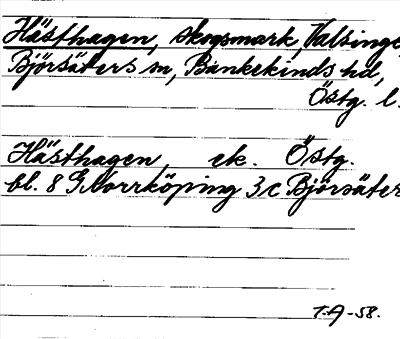 Hästhagen, skogsmark, Valsinge
Björsäters sn, Bankekinds hd,
Östg. l.
Hästhagen, ek. Östg.
bl. 8 G Norrköping 3c Björsäter
T.A-58.